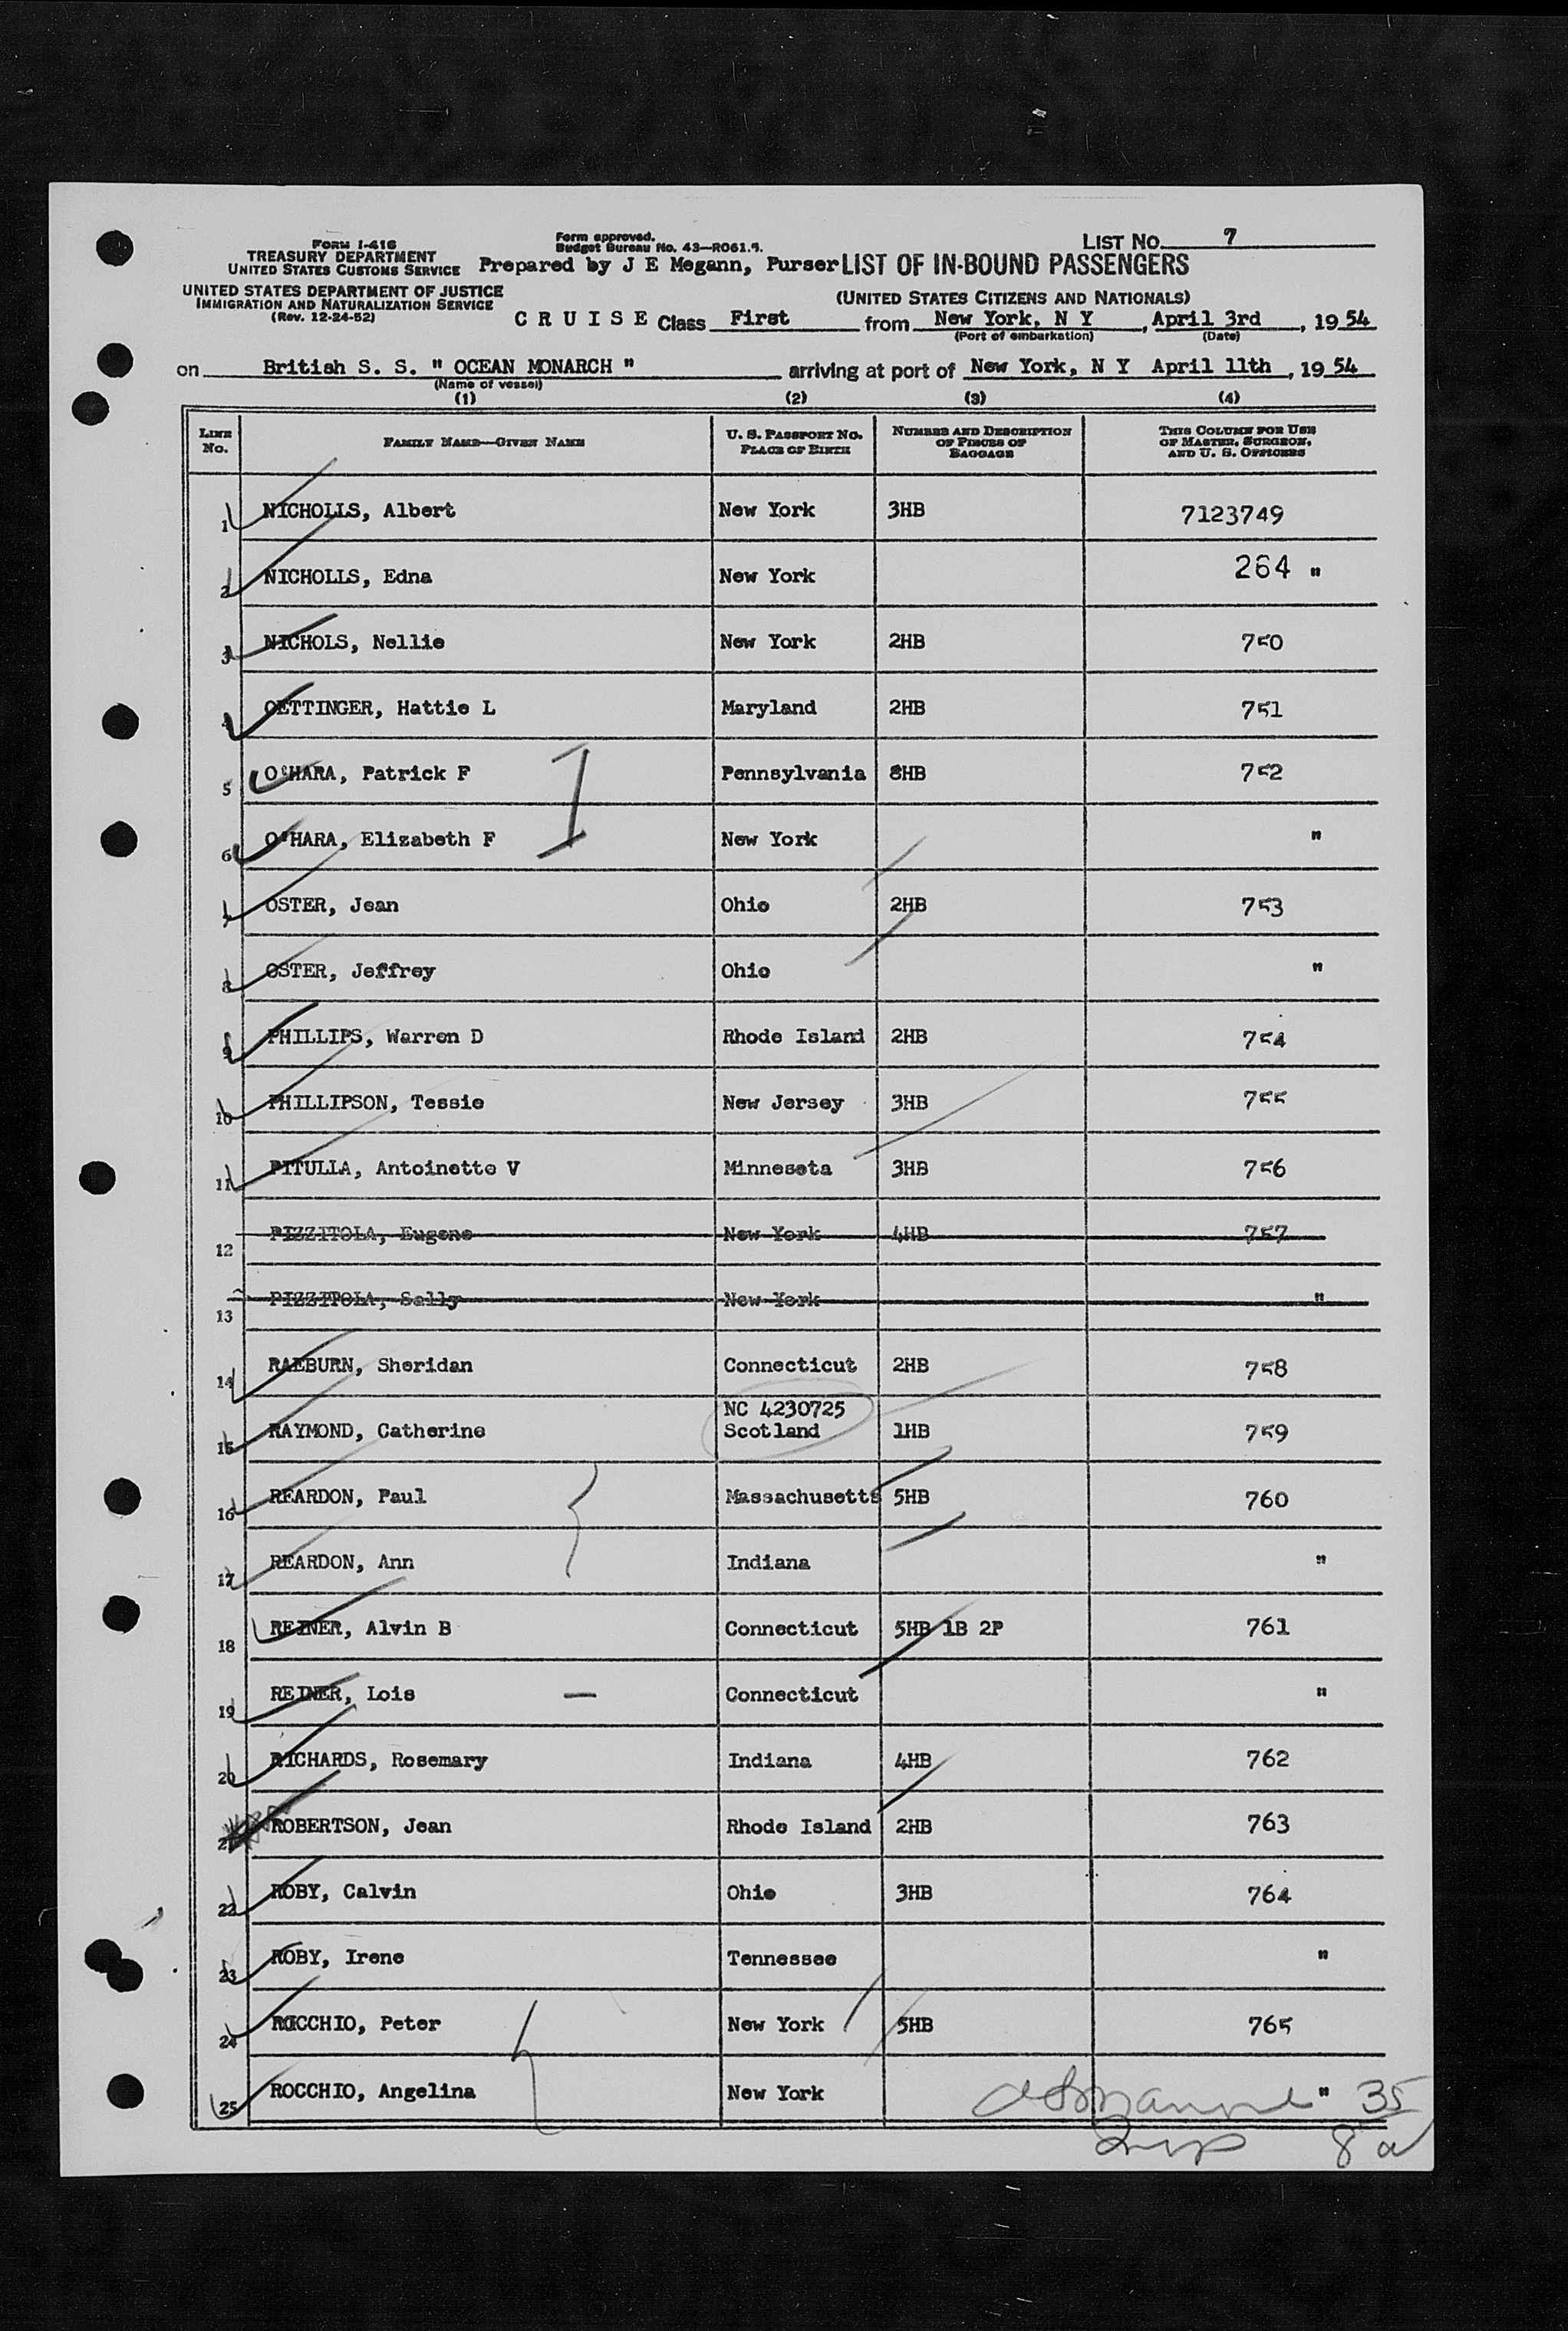 FORM I-416
TREASURY DEPARTMENT
UNITED STATES CUSTOMS SERVICE
UNITED STATES DEPARTMENT OF JUSTICE
IMMIGRATION AND NATURALIZATION SERVICE
(Rev. 12-24-52)
Form approved.
Budget Bureau No. 43—R061.
LIST NO. 7
Prepared by J E Megann, Purser LIST OF IN-BOUND PASSENGERS
(UNITED STATES CITIZENS AND NATIONALS)
C R U I S E Class First from New York, N Y, April 3rd, 19 54
(Port of embarkation) (Date)
on British S. S. " OCEAN MONARCH " arriving at port of New York, N Y April 11th, 19 54
(Name of vessel)
(1) (2) (3) (4)
LINE NO. FAMILY NAME—GIVEN NAME U. S. PASSPORT NO. PLACE OF BIRTH NUMBER AND DESCRIPTION OF PIECES OF BAGGAGE THIS COLUMN FOR USE OF MASTER, SURGEON, AND U. S. OFFICERS
1 NICHOLLS, Albert New York 3HB 7123749
2 NICHOLLS, Edna New York 264 "
3 NICHOLS, Nellie New York 2HB 750
4 OETTINGER, Hattie L Maryland 2HB 751
5 O'HARA, Patrick F Pennsylvania 8HB 752
6 O'HARA, Elizabeth F New York "
7 OSTER, Jean Ohio 2HB 753
8 OSTER, Jeffrey Ohio "
9 PHILLIPS, Warren D Rhode Island 2HB 754
10 PHILLIPSON, Tessie New Jersey 3HB 755
11 PITULLA, Antoinette V Minnesota 3HB 756
12 PIZZITOLA, Eugene New York 4HB 757
13 PIZZITOLA, Sally New York "
14 RAEBURN, Sheridan Connecticut 2HB 758
NC 4230725
15 RAYMOND, Catherine Scotland 1HB 759
16 REARDON, Paul Massachusetts 5HB 760
17 REARDON, Ann Indiana "
18 REINER, Alvin B Connecticut 5HB 1B 2P 761
19 REINER, Lois Connecticut "
20 RICHARDS, Rosemary Indiana 4HB 762
21 ROBERTSON, Jean Rhode Island 2HB 763
22 ROBY, Calvin Ohio 3HB 764
23 ROBY, Irene Tennessee "
24 ROCCHIO, Peter New York 5HB 765
25 ROCCHIO, Angelina New York " 35
8 a